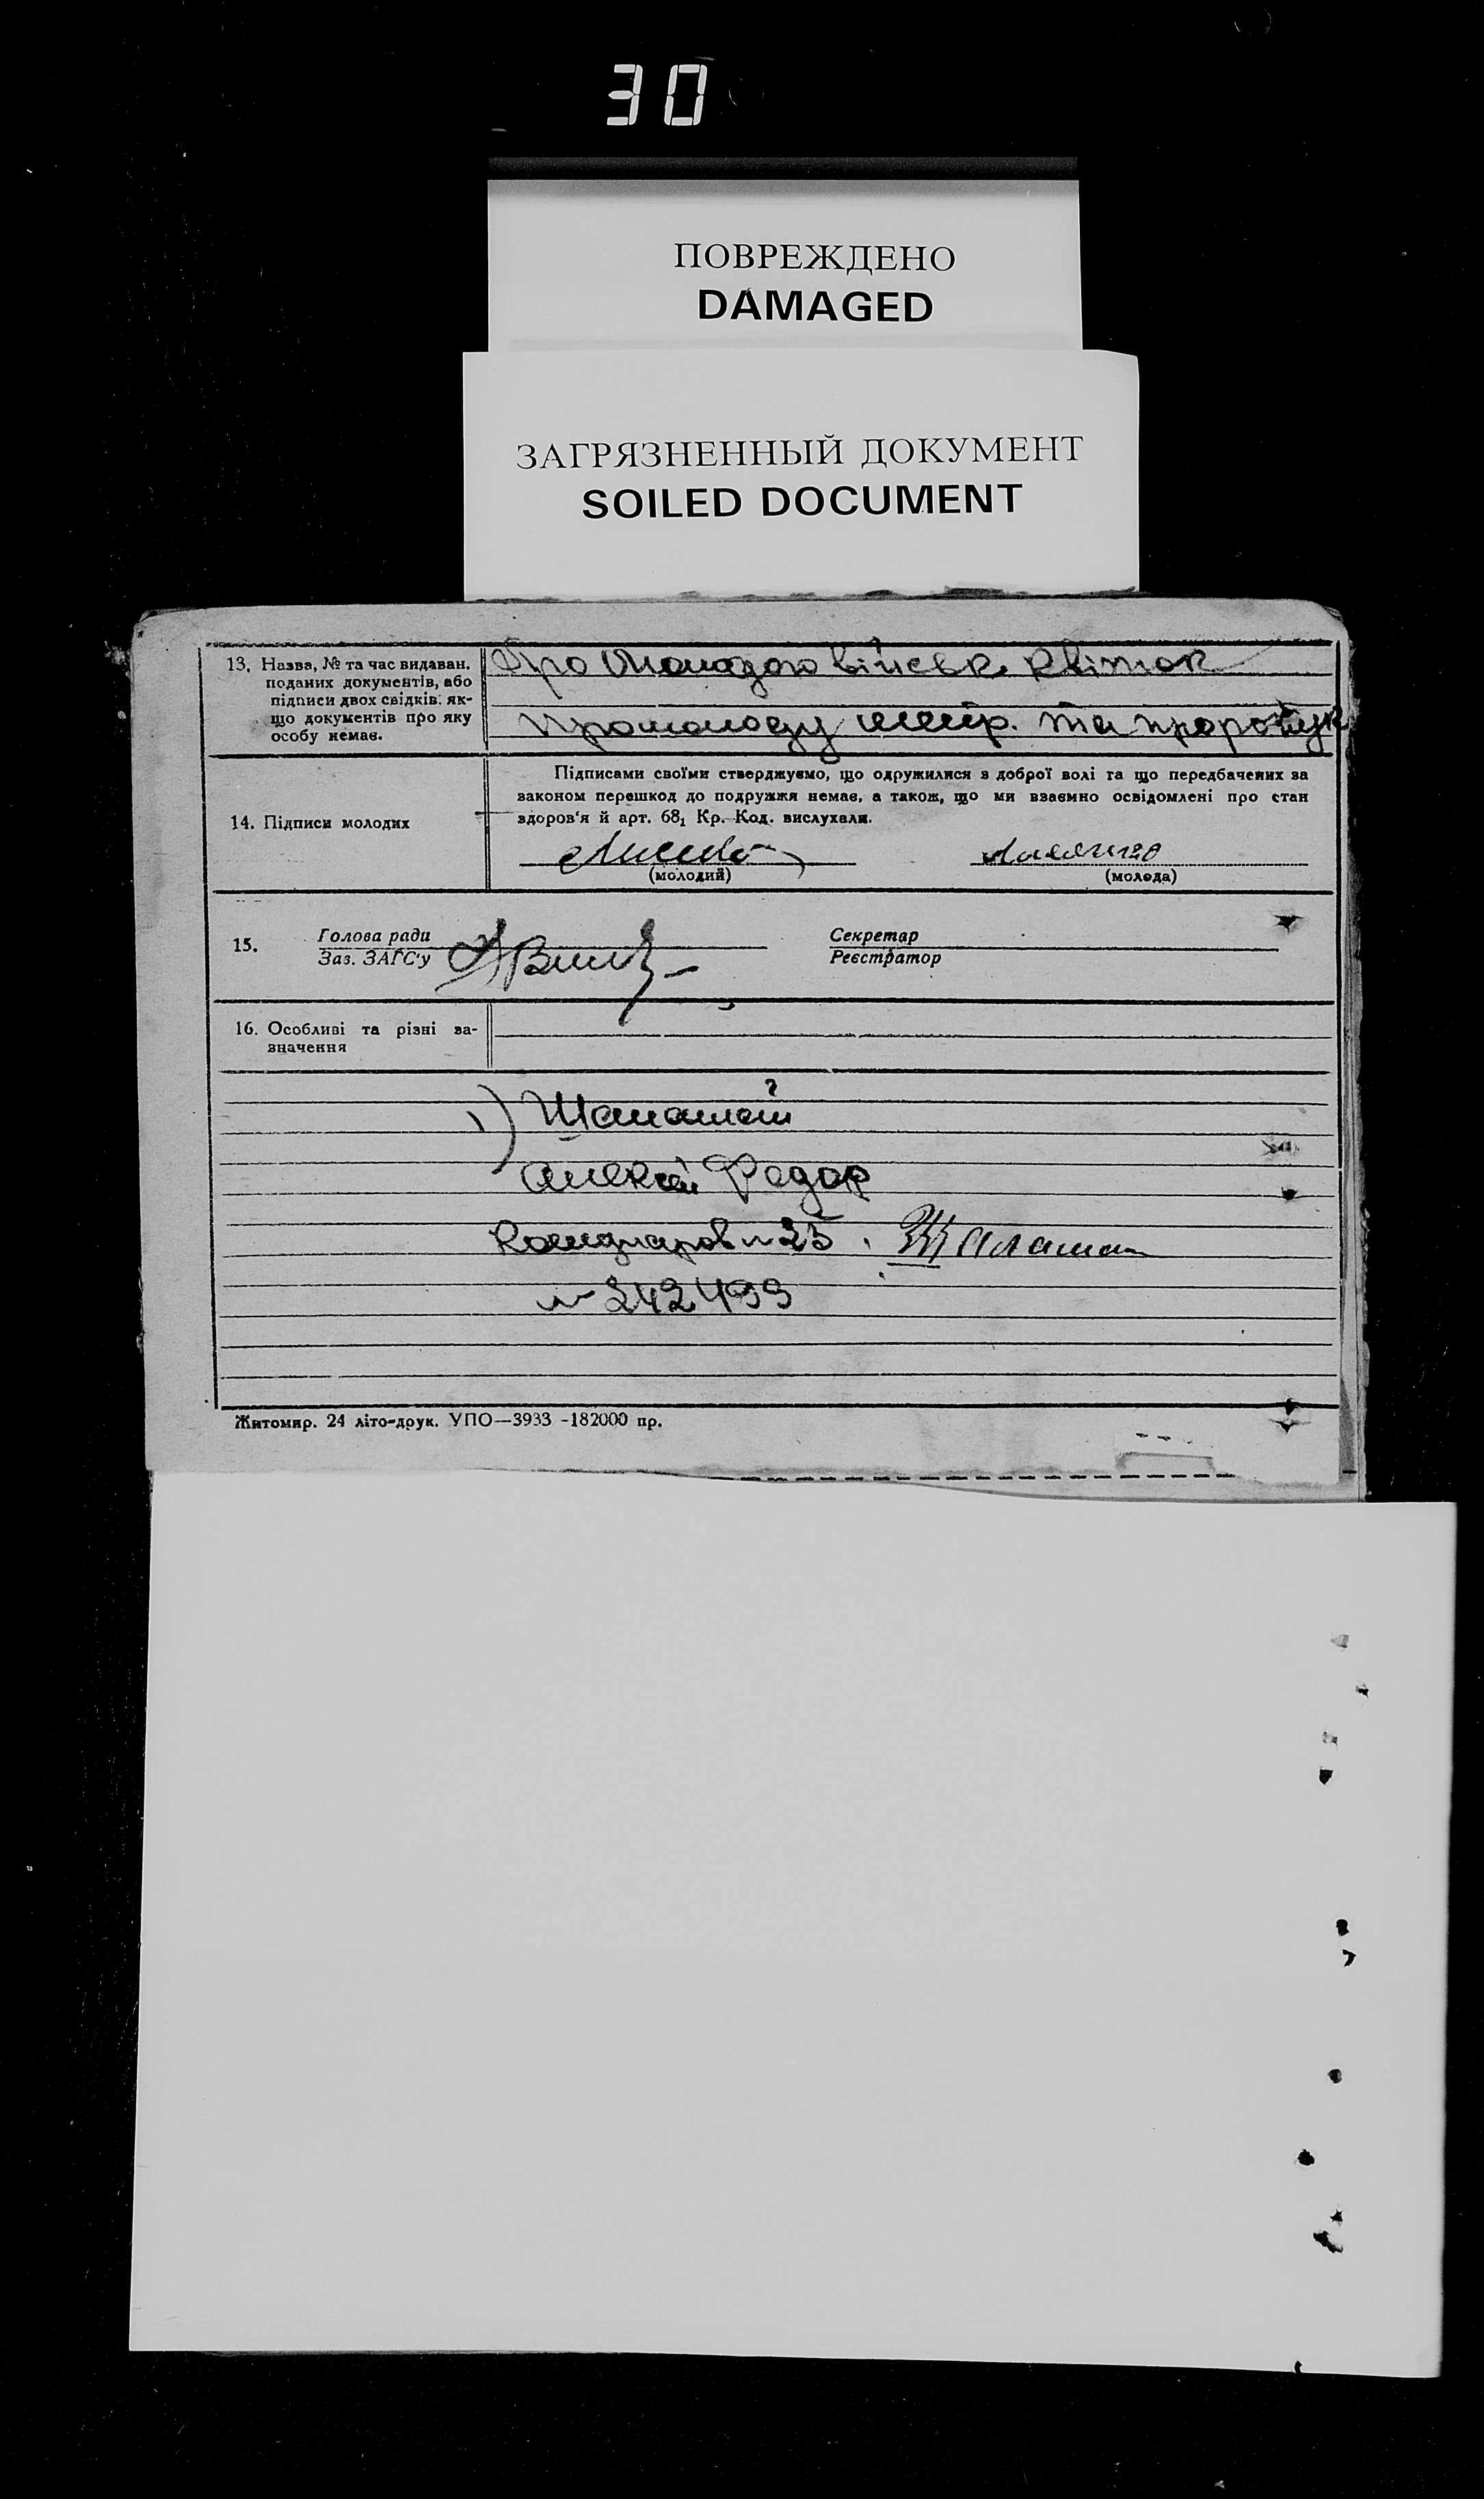 30
ПОВРЕЖДЕНО
DAMAGED
ЗАГРЯЗНЕННЫЙ ДОКУМЕНТ
SOILED DOCUMENT
13. Назва, № та час видаван.
поданих документів, або
підписи двох свідків, як-
що документів про яку
особу немає.
Про молодого військ. квиток
про молоду
та
14. Підписи молодих
Підписами своїми стверджуємо, що одружилися з доброї волі та що передбачених за
законом перешкод до подружжя немає, а також, що ми взаємно освідомлені про стан
здоров'я й арт. 68₁ Кр. Код. вислухали.
(молодий)
(молода)
15.
Голова ради
Заз. ЗАГС'у
Секретар
Реєстратор
16. Особливі та різні за-
значення
1)
Алексей Федор
23
№ 242499
Житомир. 24 літо-друк. УПО—3933 -182000 пр.